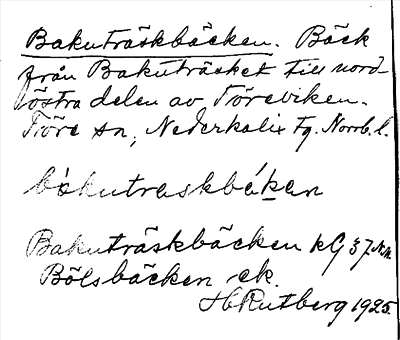 Bakuträskbäcken. Bäck
från Bakuträsket till nord-
östra delen av Töreviken.
Töre sn, Nederkalix tg. Norrb. l.
bákutraskbék̲an
Bakuträskbäcken kG 37 N.N.
Bölsbäcken ek.
H Rutberg 1925.